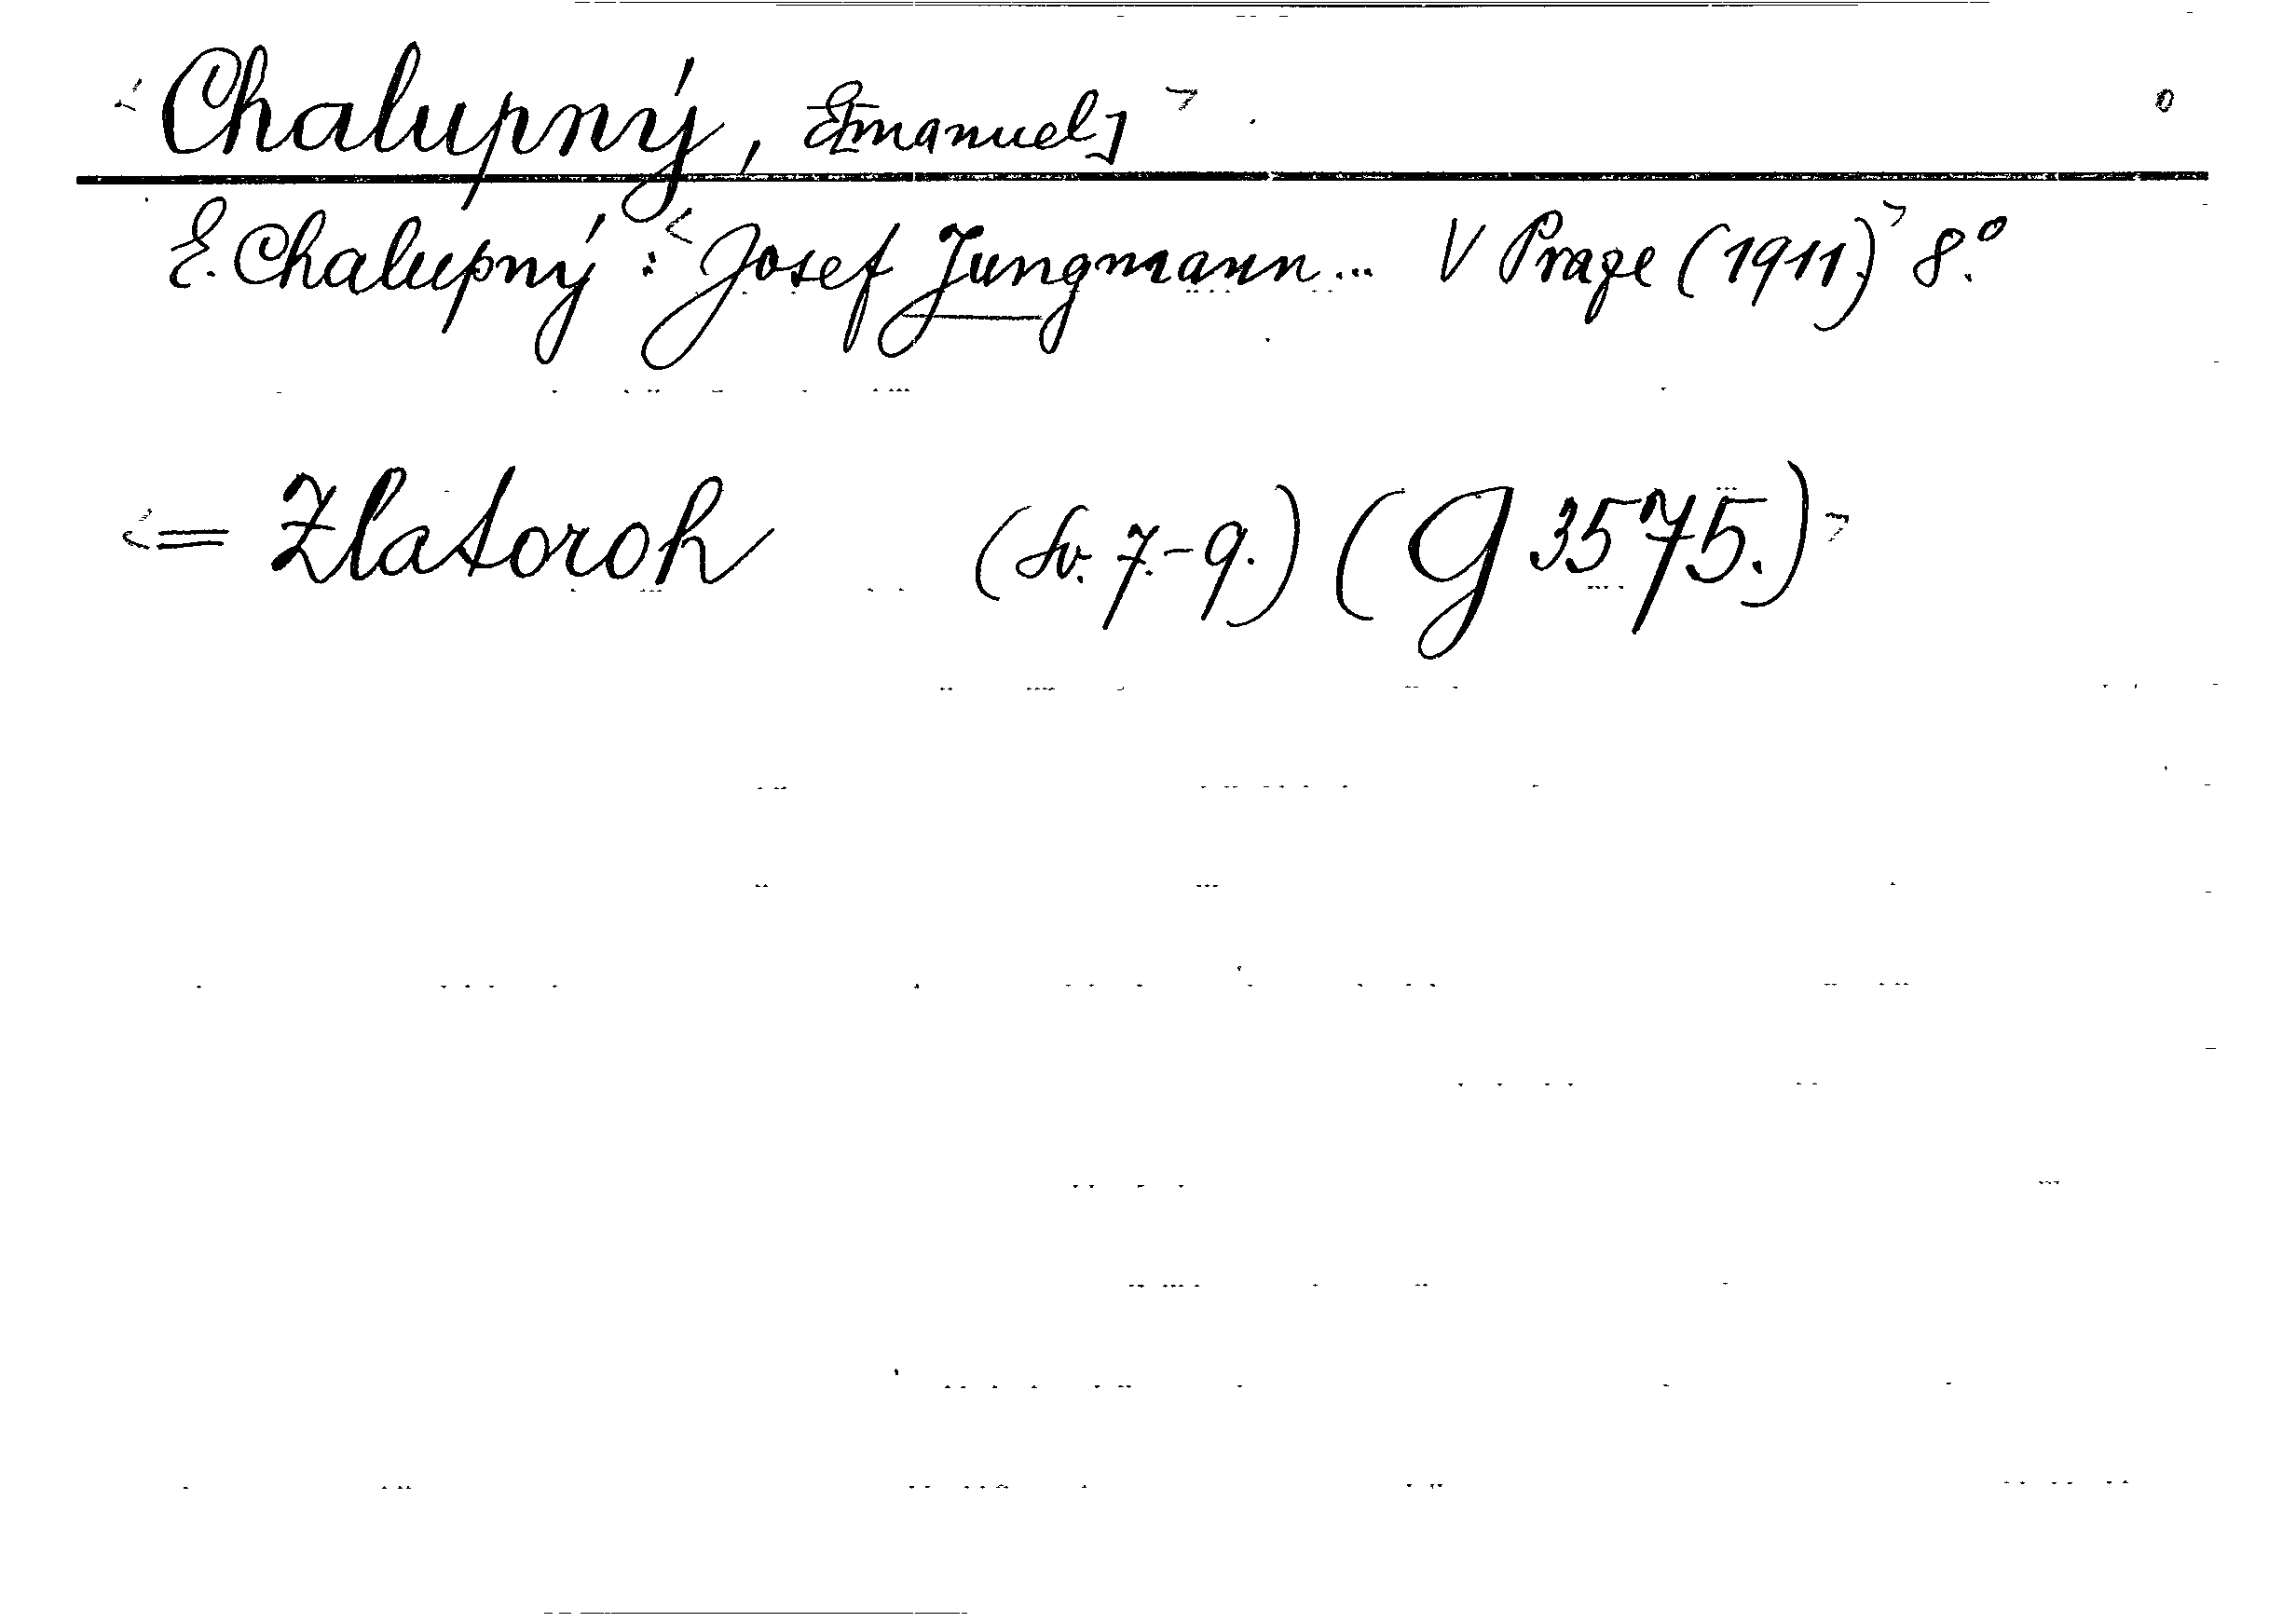 <Chalupný, E[manuel]> 0
E. Chalupný: <Josef Jungmann... V Praze (1911.)> 8.º
<= Zlatoroh (Sv. 7.-9.) (G 3575.)>